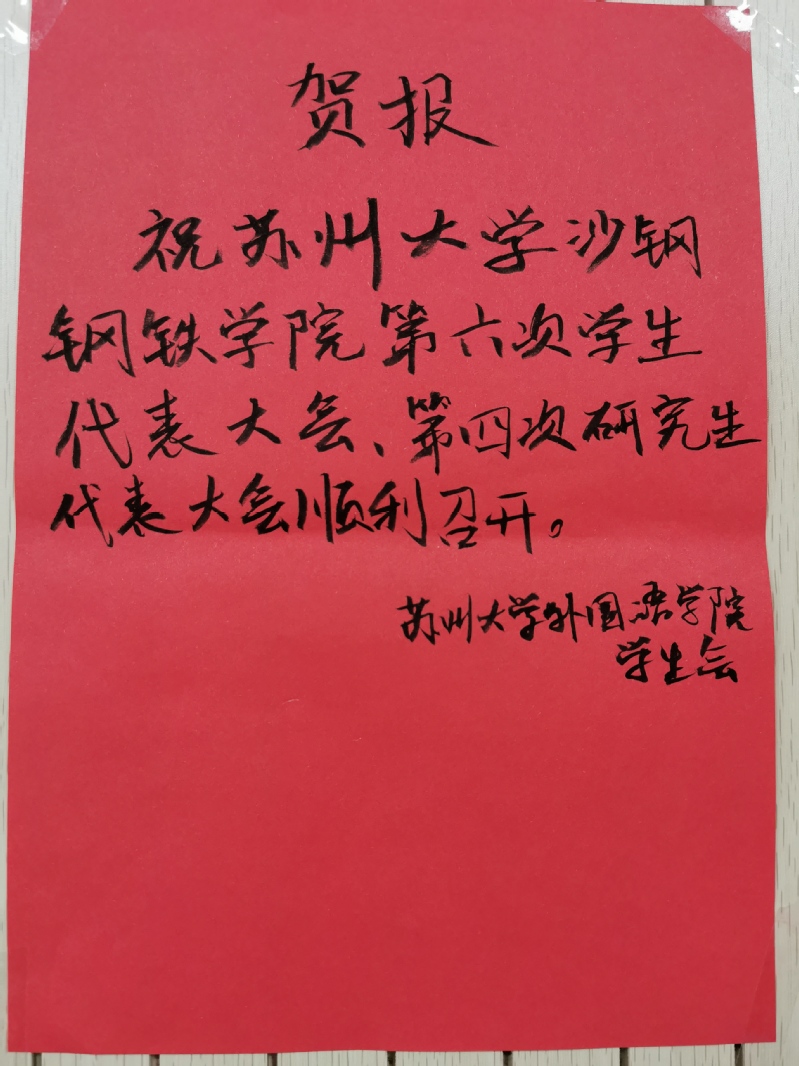 贺报
祝苏州大学沙钢
钢铁学院第六次学生
代表大会、第四次研究生
代表大会顺利召开。
苏州大学外国语学院
学生会